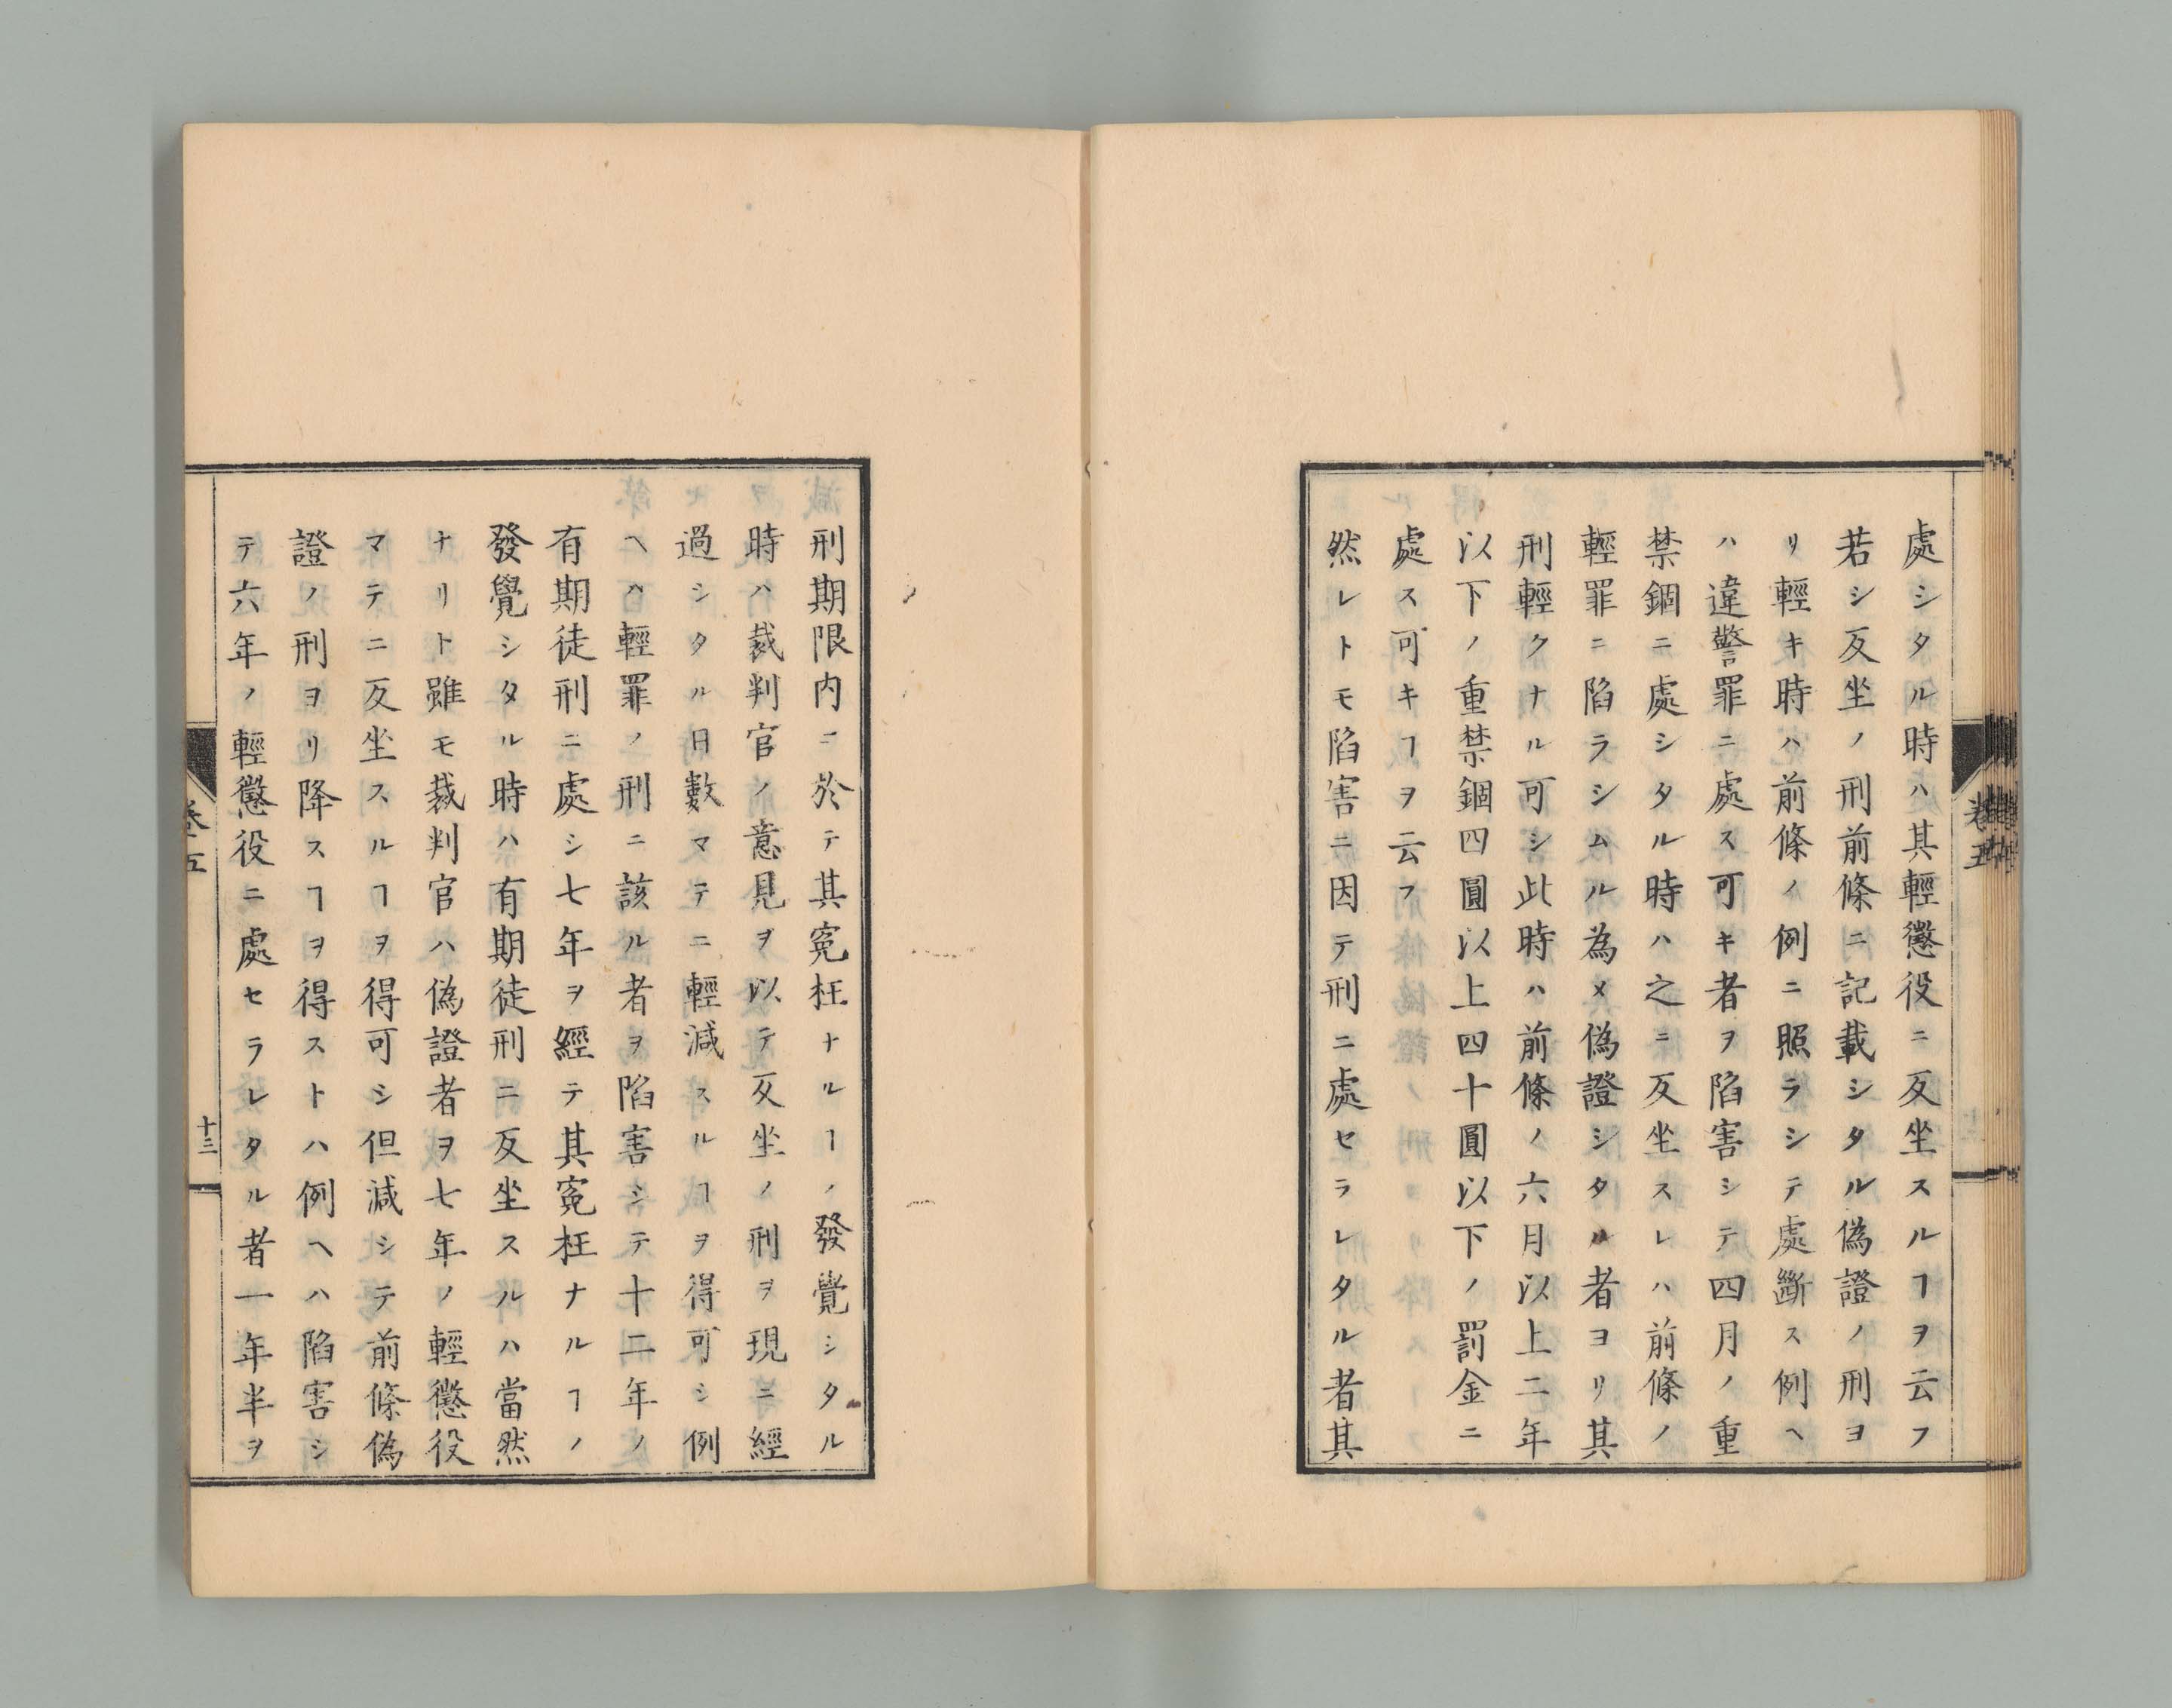 處シタル時ハ其輕懲役ニ反坐スルヿヲ云フ
若シ反坐ノ刑前條ニ記載シタル偽證ノ刑ヨ
リ輕キ時ハ前條ノ例ニ照ラシテ處斷ス例ヘ
ハ違警罪ニ處ス可キ者ヲ陷害シテ四月ノ重
禁錮ニ處シタル時ハ之ニ反坐スレハ前條ノ
輕罪ニ陷ラシムル為メ偽證シタル者ヨリ其
刑輕クナル可シ此時ハ前條ノ六月以上二年
以下ノ重禁錮四圓以上四十圓以下ノ罰金ニ
處ス可キヿヲ云フ
然レトモ陷害ニ因テ刑ニ處セラレタル者其
卷五
刑期限内ニ於テ其冤枉ナルヿノ發覺シタル
時ハ裁判官ノ意見ヲ以テ反坐ノ刑ヲ現ニ經
過シタル日數マテニ輕減スルヿヲ得可シ例
ヘハ輕罪ノ刑ニ該ル者ヲ陷害シテ十二年ノ
有期徒刑ニ處シ七年ヲ經テ其冤枉ナルヿノ
發覺シタル時ハ有期徒刑ニ反坐スルハ當然
ナリト雖モ裁判官ハ偽證者ヲ七年ノ輕懲役
マテニ反坐スルヿヲ得可シ但減シテ前條偽
證ノ刑ヨリ降スヿヲ得ストハ例ヘハ陷害シ
テ六年ノ輕懲役ニ處セラレタル者一年半ヲ
卷五
十三